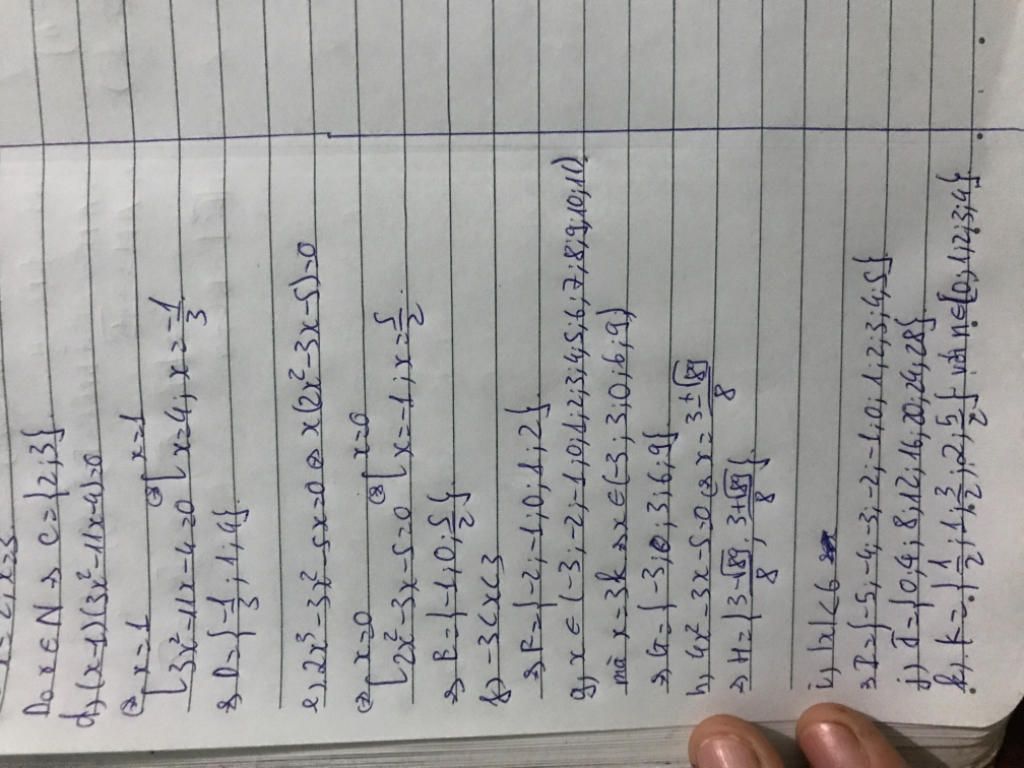 Do x ∈ N => C = {2; 3}
d, (x-1)(3x²-11x-4)=0
<=> [ x=1 <=> [ x=1
[ 3x²-11x-4=0 [ x=4; x=-1/3
=> D={-1/3; 1; 4}
e, 2x³-3x²-5x=0 <=> x(2x²-3x-5)=0
<=> [ x=0 <=> [ x=0
[ 2x²-3x-5=0 [ x=-1; x=5/2
=> E={-1; 0; 5/2}
f) -3<x<3
=> F={-2; -1; 0; 1; 2}
g, x ∈ (-3; -2; -1; 0; 1; 2; 3; 4; 5; 6; 7; 8; 9; 10; 11)
mà x=3k => x ∈ (-3; 3; 0; 6; 9)
=> G={-3; 0; 3; 6; 9}
h, 4x²-3x-5=0 <=> x=(3±√89)/8
=> H={(3-√89)/8; (3+√89)/8}
i, |x|<6
=> I={-5; -4; -3; -2; -1; 0; 1; 2; 3; 4; 5}
j) J={0; 4; 8; 12; 16; 20; 24; 28}
k, K={1/2; 1; 3/2; 2; 5/2} với n∈{0; 1; 2; 3; 4}